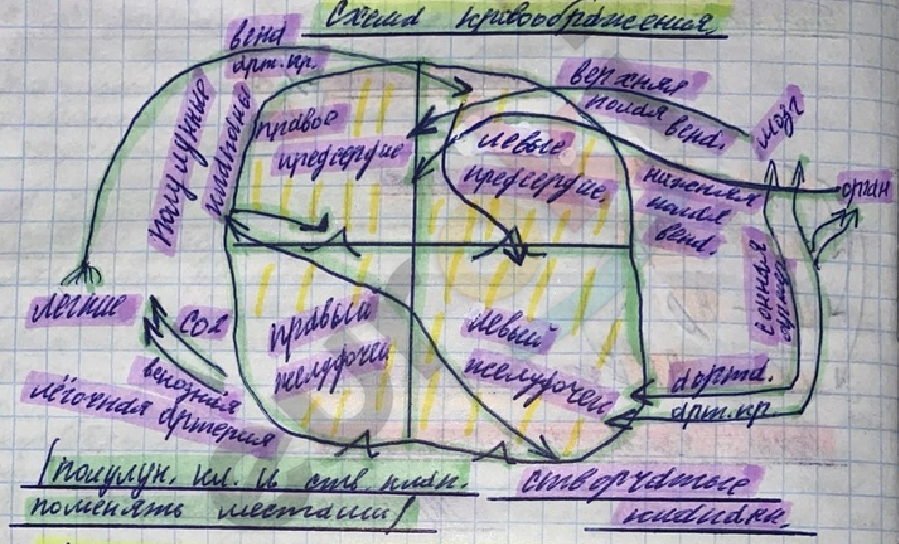 Схема кровоображения
вена
арт.кр.
полулунные
клапаны
правое
предсердие
левые
предсердие
верхняя
полая
вена.
мозг
нижняя
полая
вена.
орган
сонная
легкие
CO2
венозная
лёгочная артерия
правый
желудочек
левый
желудочек
аорта.
арт.кр
(полулун. кл. и ств клап.
поменять местами)
створчатые
клапаны.